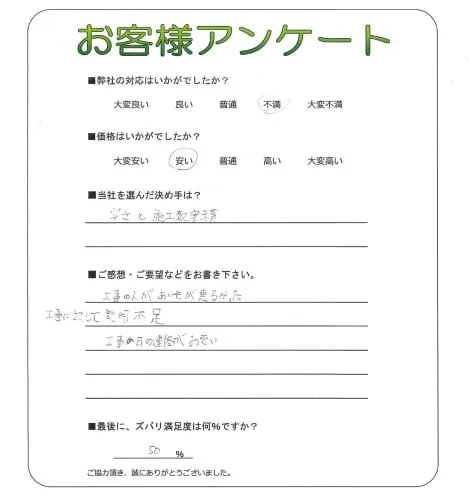 お客様アンケート
■弊社の対応はいかがでしたか?
大変良い 良い 普通 不満 大変不満
■価格はいかがでしたか?
大変安い 安い 普通 高い 大変高い
■当社を選んだ決め手は?
安さと施工数実積
■ご感想・ご要望などをお書き下さい。
工事の人があいそが悪るかった
工事に対して説明不足
工事の日の連絡がおそい
■最後に、ズバリ満足度は何%ですか?
50 %
ご協力頂き、誠にありがとうございました。